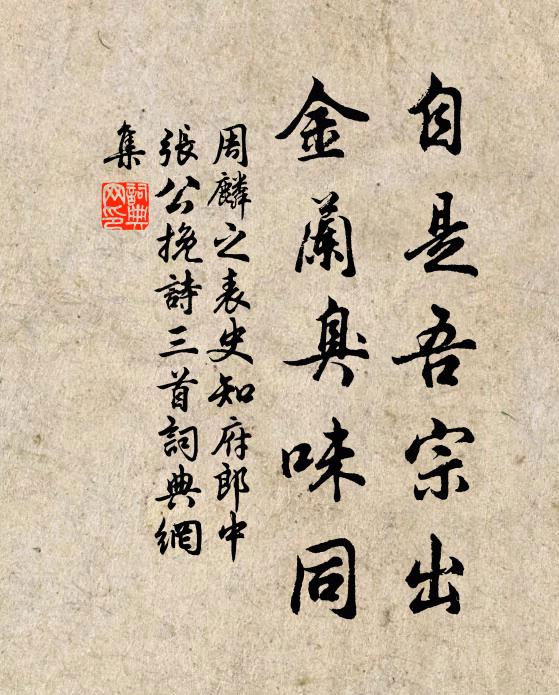 自是吾宗出
金蘭臭味同
周麟之表史知府郎中
張公挽詩三首詞典網
集
詞典
网印